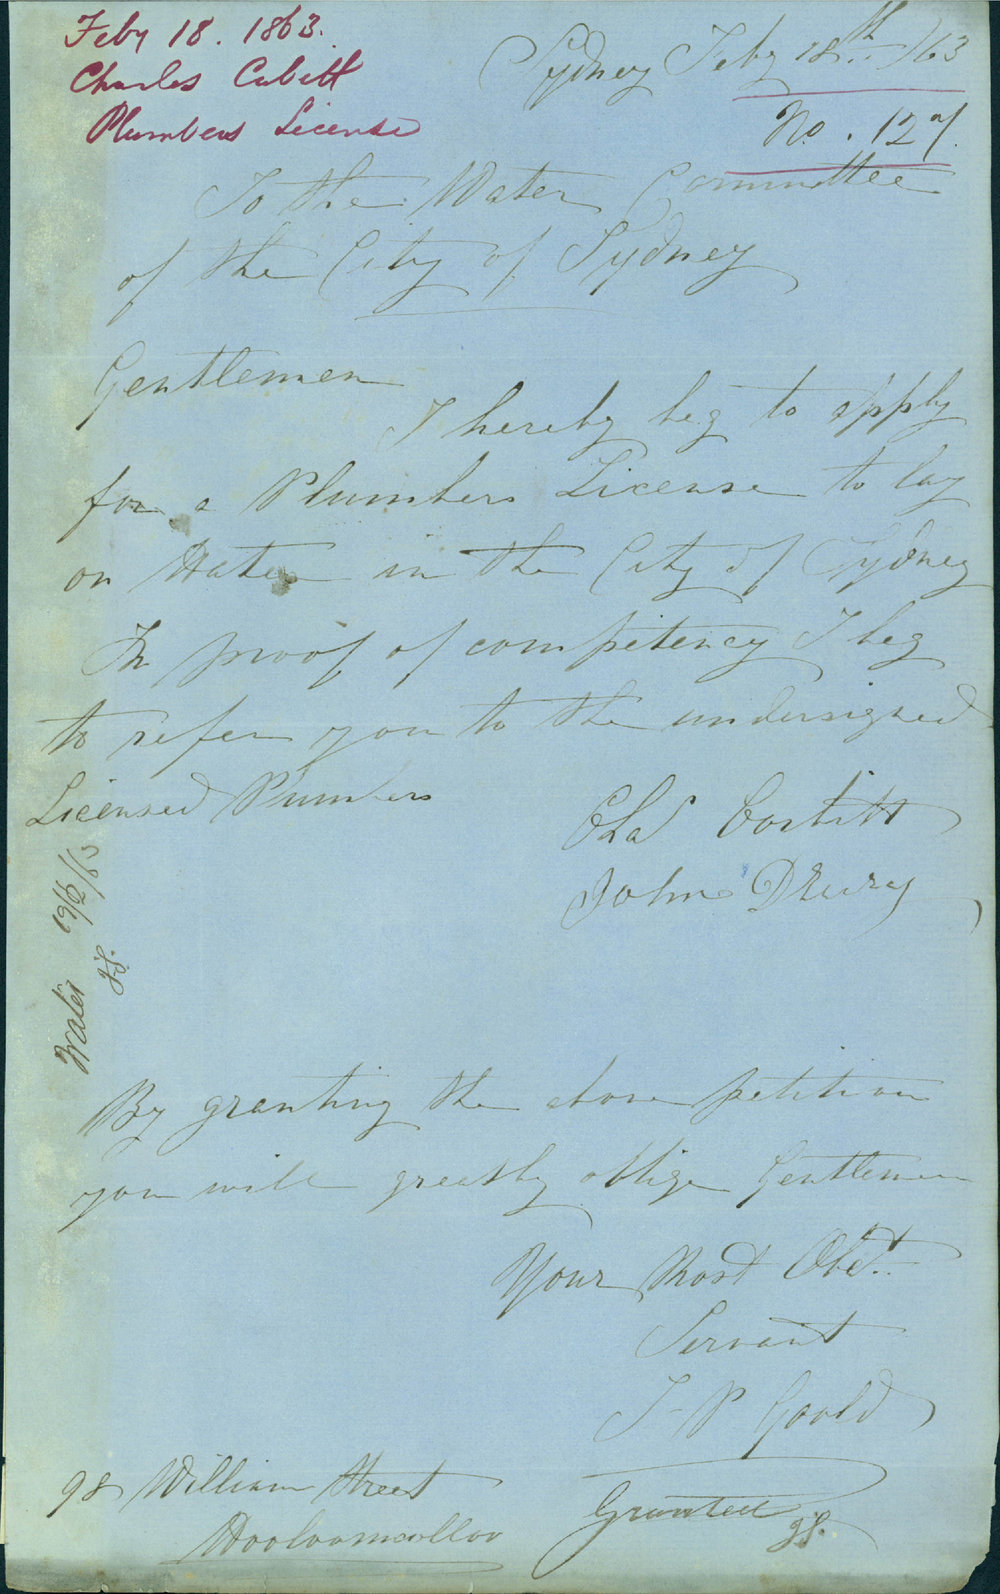 Feby 18. 1863.
Charles Cubitt
Plumbers License
Sydney Feby 18th /63
No. 127.
To the Water Committee
of the City of Sydney
Gentlemen
I hereby beg to apply
for a Plumbers License to lay
on Water in the City of Sydney
In proof of competency I beg
to refer you to the undersigned
Licensed Plumbers
Chas
John Drury
Water 19/2/63
By granting the above petition
you will greatly oblige Gentlemen
Your Most Obdt.
Servant
J P Goold
98 William Street
Wooloomoolloo
Granted